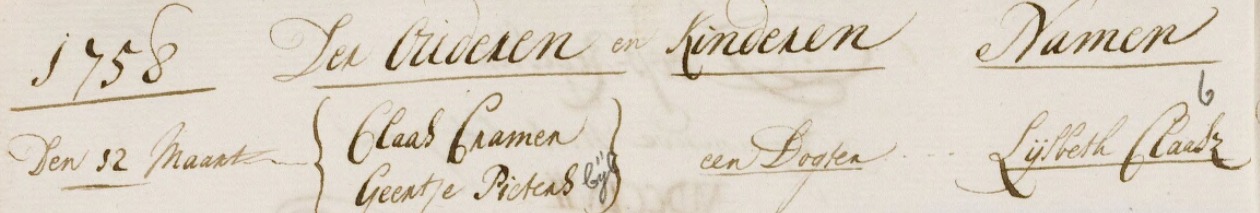 1758 Der Ouderen en Kinderen Namen
6
Den 12 Maart { Claas Cramer } een Dogter .... Lijsbeth Claasz
Geertje Pieters bij